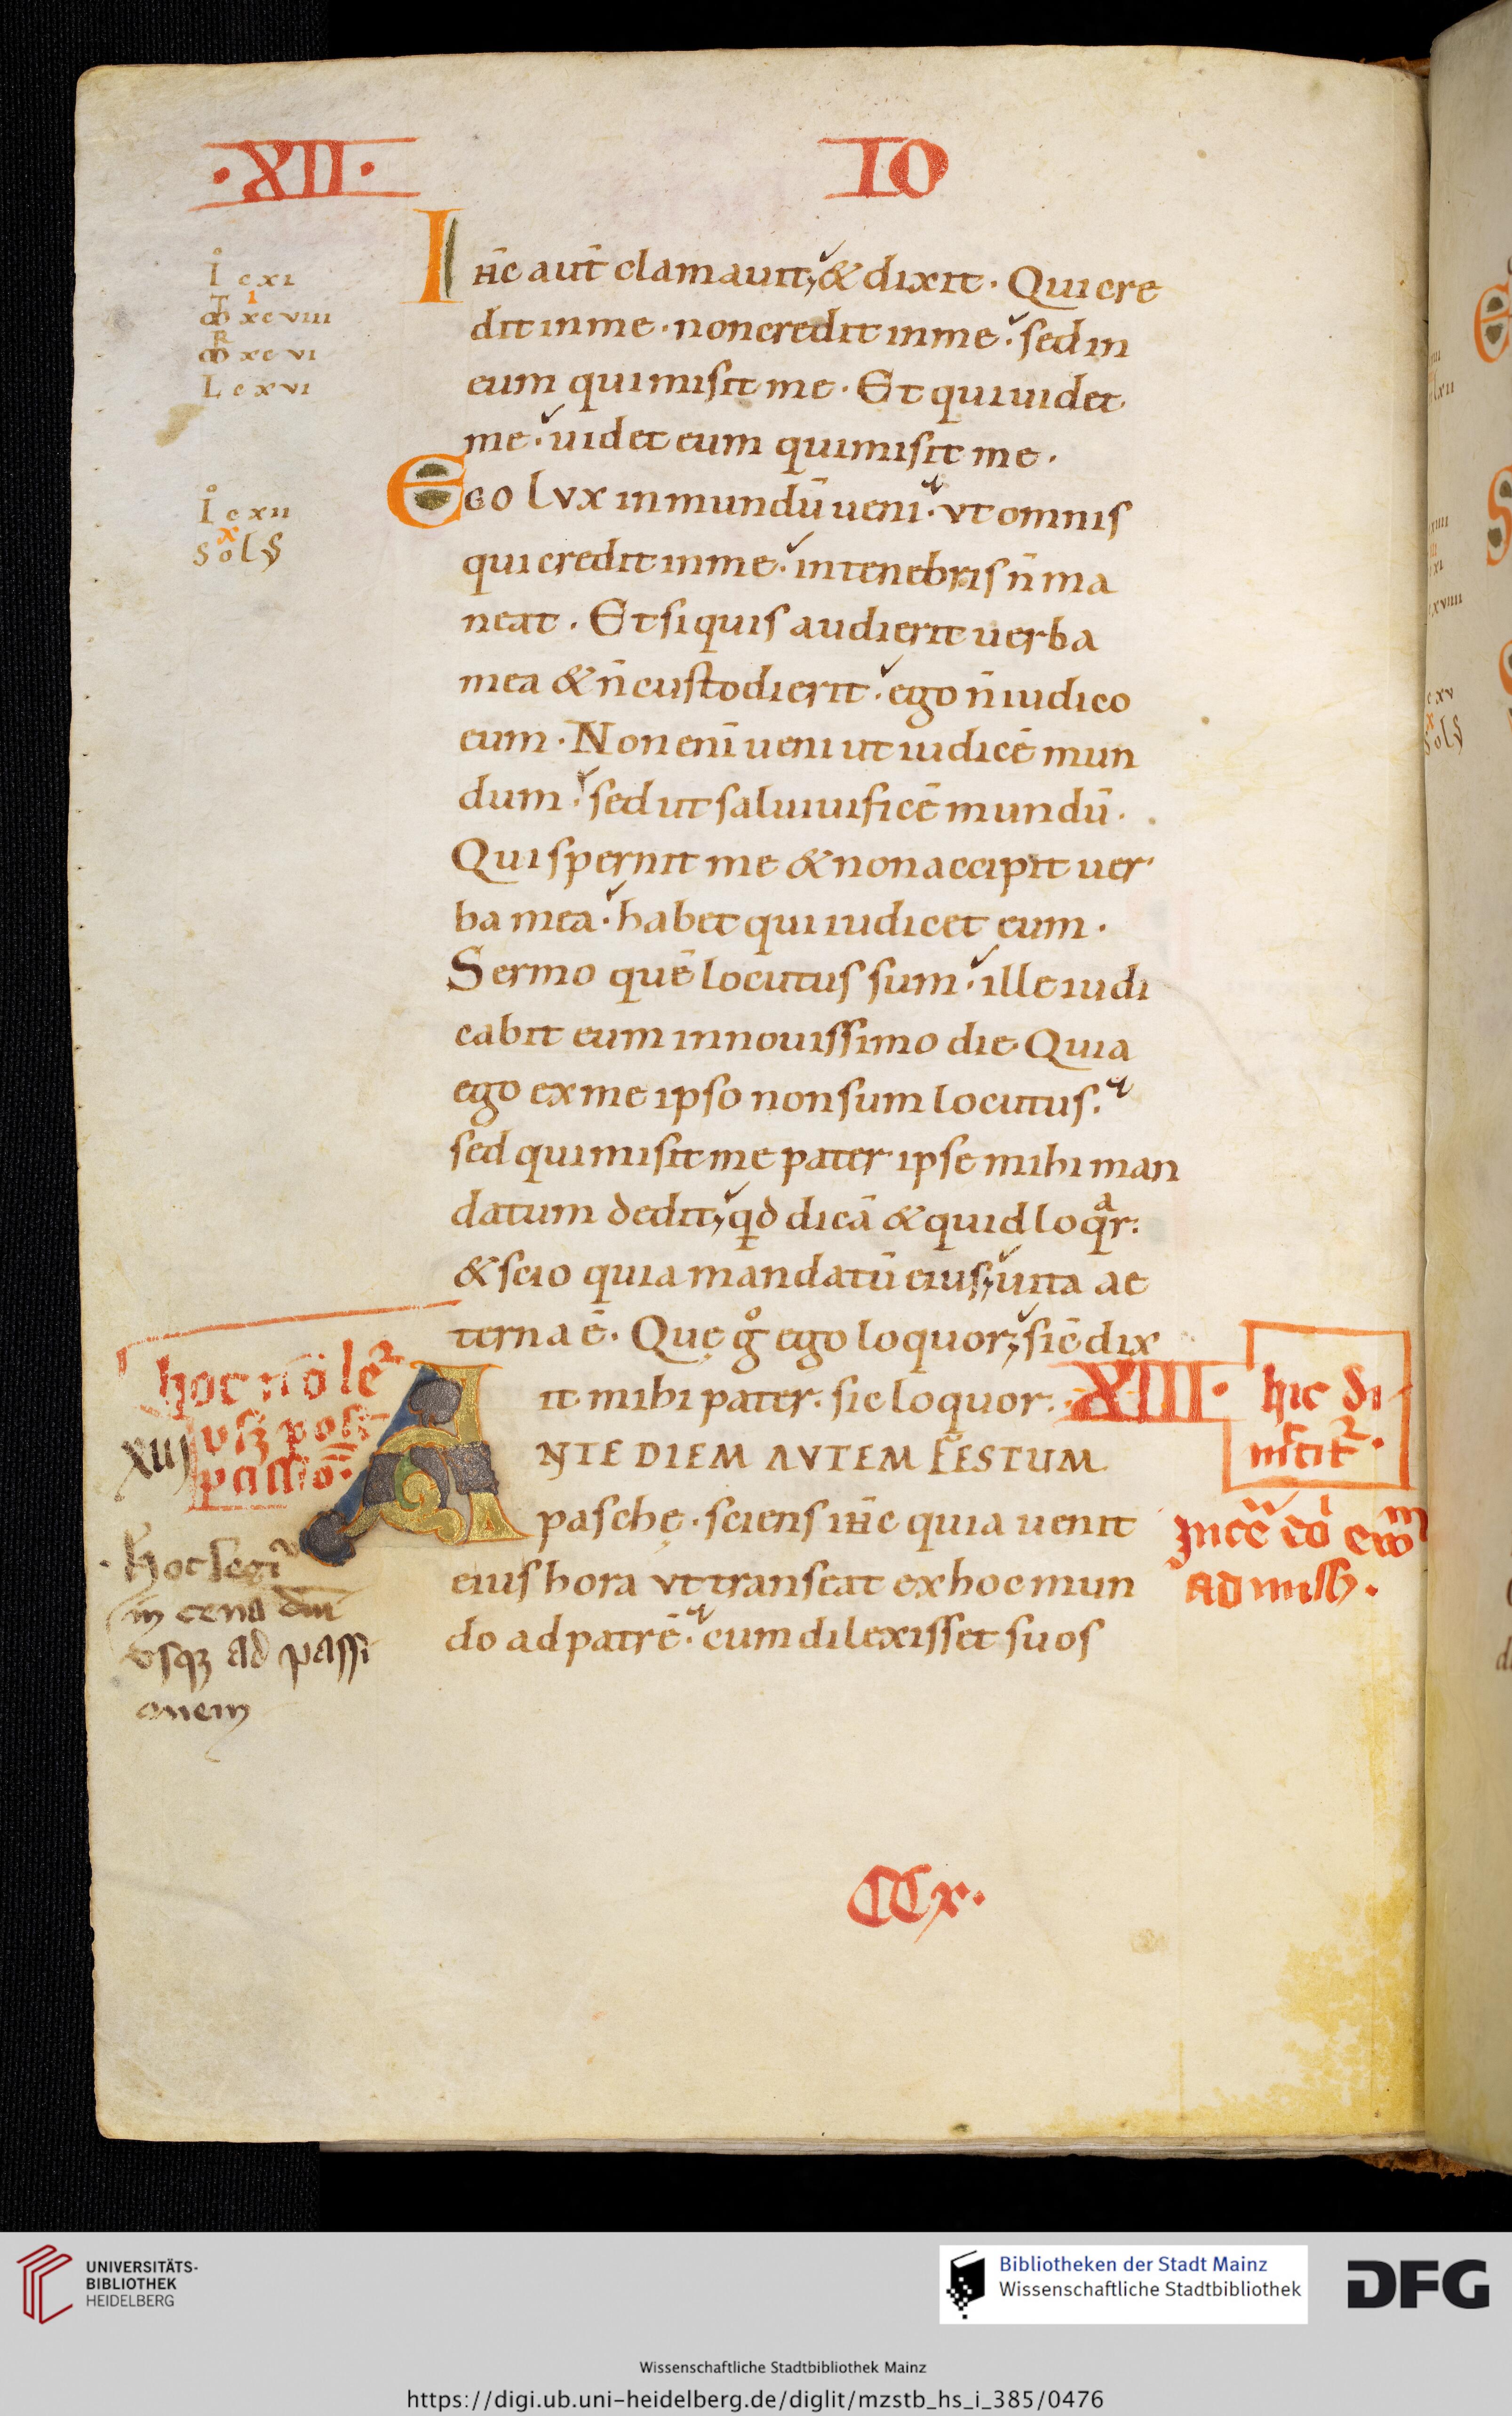 ·XII· IO
I cxi
xcviii
xcvi
L cxvi
IħC aut̄ clamauit, & dixit. Qui cre
dit in me. non credit in me. sed in
eum qui misit me. Et qui uidet
me. uidet eum qui misit me.
I cxii
sol
Ego lvx in mundū ueni. vt omnis
qui credit in me. in tenebris n̄ ma
neat. Et si quis audierit uerba
mea & n̄ custodierit. ego n̄ iudico
eum. Non enī ueni ut iudicē mun
dum. sed ut saluiuificē mundū.
Qui spernit me & non accipit uer
ba mea. habet qui iudicet eum.
Sermo quē locutus sum. ille iudi
cabit eum in nouissimo die. Quia
ego ex me ipso non sum locutus.
sed qui misit me pater ipse mihi man
datum dedit, qd dicā & quid loqᵃr:
& scio quia mandatū eius, uita ae
terna ē. Quę gͦ ego loquor, sic̄ dix
it mihi pater. sic loquor: ·XIII·
hoc nō le
vsqꝫ post
passiō.
xiij
hic di
ANTE DIEM AVTEM FESTUM
paschę. sciens iħc quia uenit
eius hora vt transeat ex hoc mun
do ad patrē. cum dilexisset suos
Hoc legi
in cena dn̄i
vsqꝫ ad passi
onem
In
ad miss.
CCx.
UNIVERSITÄTS-
BIBLIOTHEK
HEIDELBERG
Bibliotheken der Stadt Mainz
Wissenschaftliche Stadtbibliothek
DFG
Wissenschaftliche Stadtbibliothek Mainz
https://digi.ub.uni-heidelberg.de/diglit/mzstb_hs_i_385/0476